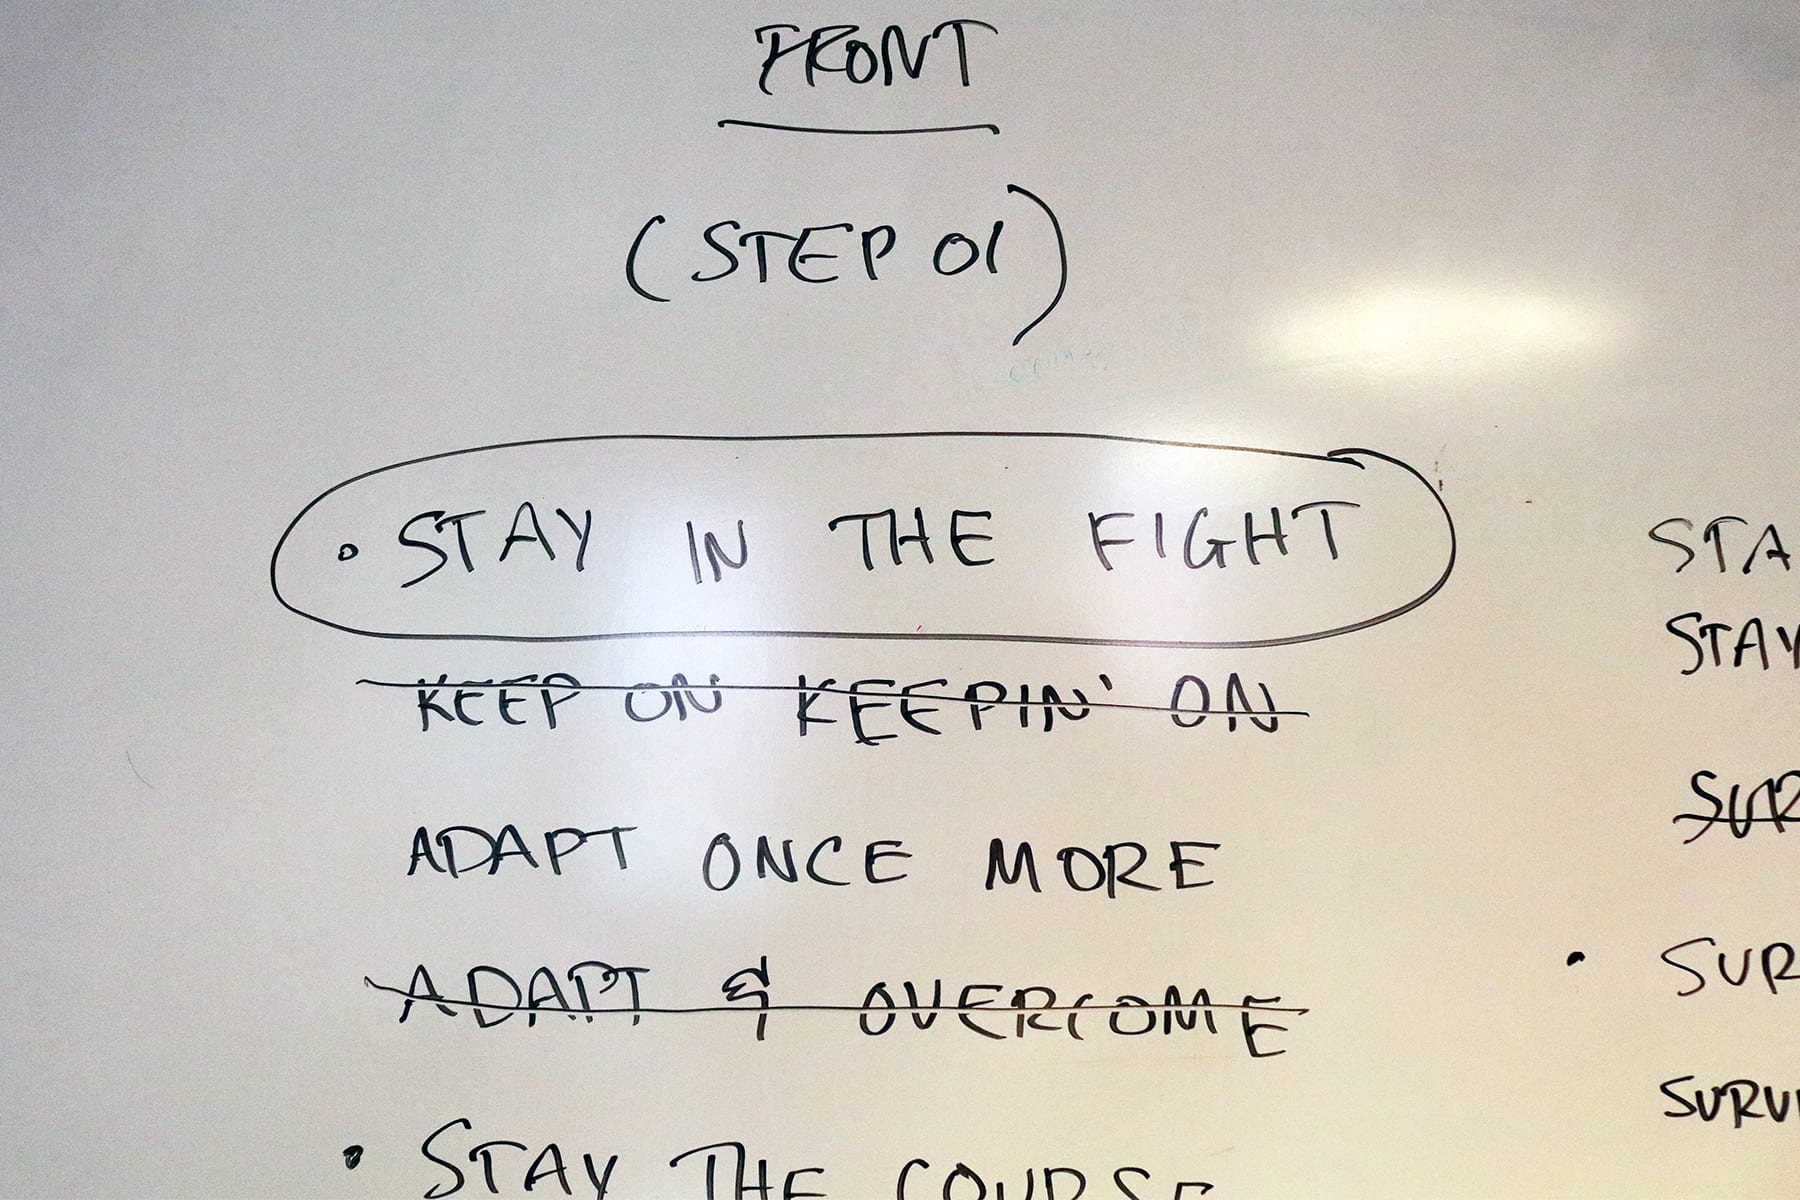 FRONT
(STEP 01)
• STAY IN THE FIGHT
KEEP ON KEEPIN' ON
ADAPT ONCE MORE
ADAPT & OVERCOME
• STAY THE COURSE
STA
STAY
SUR
• SUR
SURVI